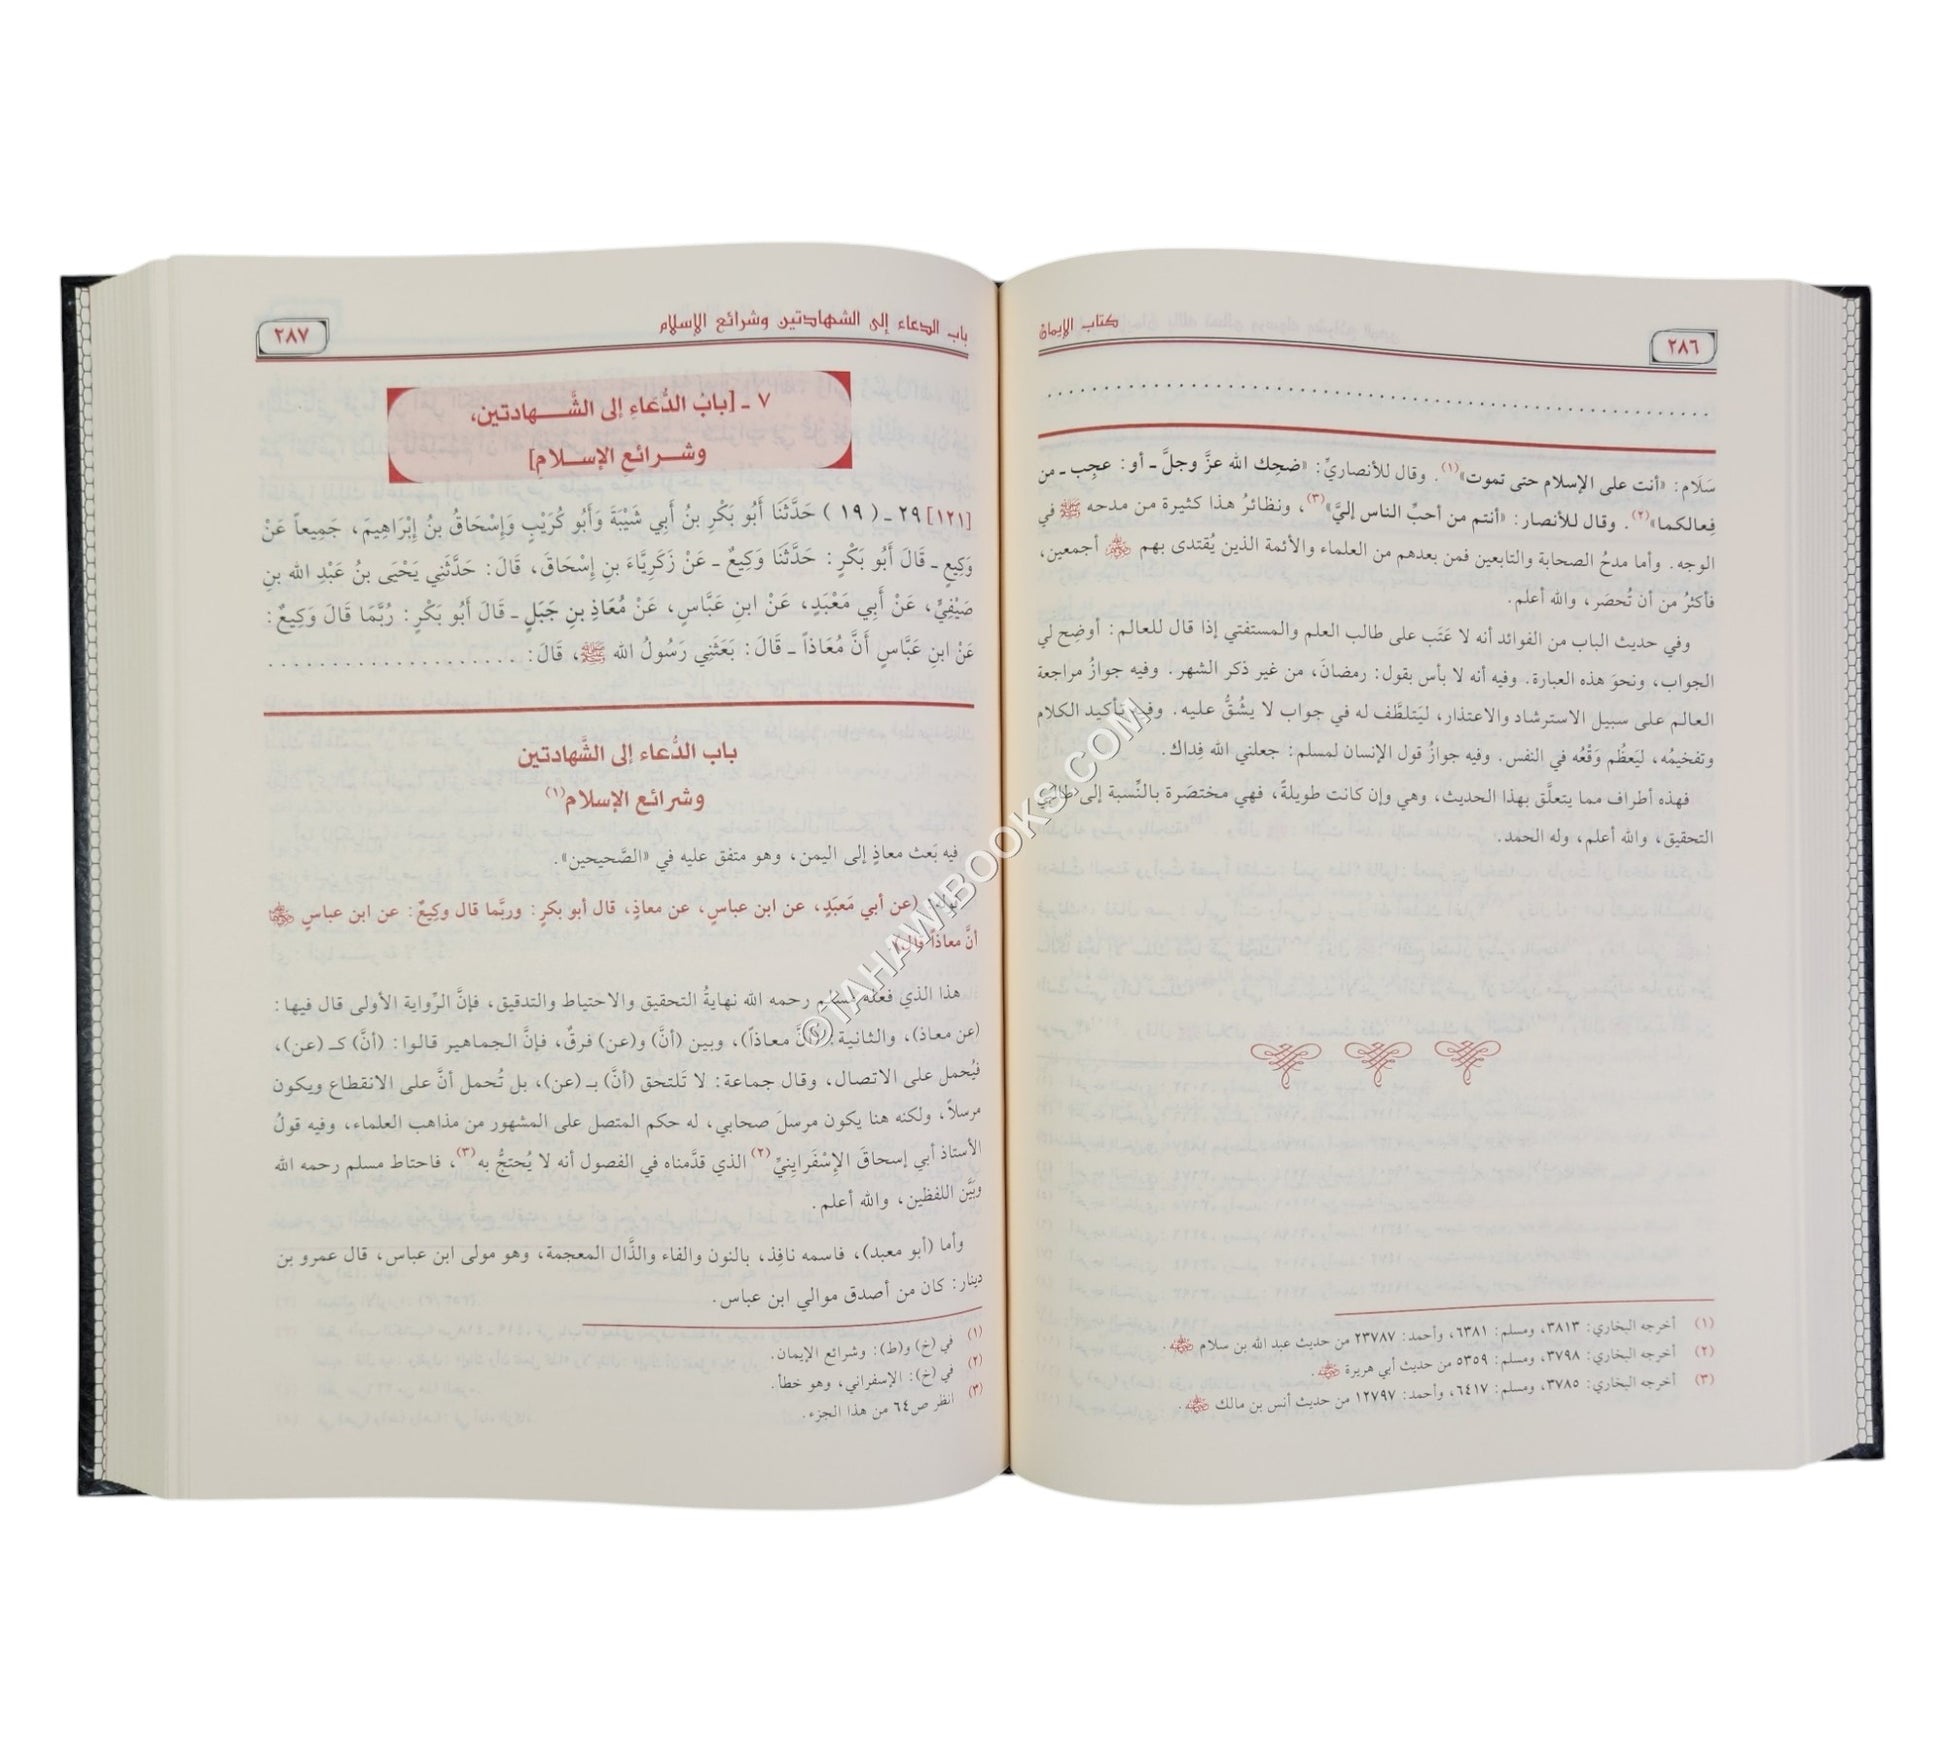 كتاب الإيمان
٢٨٦
سَلَام: «أنت على الإسلام حتى تموت»(١). وقال للأنصاريِّ: «ضحِك الله عزَّ وجلَّ ـ أو: عجِب ـ من
فِعالكما»(٢). وقال للأنصار: «أنتم من أحبِّ الناس إليَّ»(٣)، ونظائرُ هذا كثيرة من مدحه ﷺ في
الوجه. وأما مدحُ الصحابة والتابعين فمن بعدهم من العلماء والأئمة الذين يُقتدى بهم ﵃ أجمعين،
فأكثرُ من أن تُحصَر، والله أعلم.
وفي حديث الباب من الفوائد أنه لا عَتَب على طالب العلم والمستفتي إذا قال للعالم: أوضِح لي
الجواب، ونحوَ هذه العبارة. وفيه أنه لا بأس بقول: رمضانَ، من غير ذكر الشهر. وفيه جوازُ مراجعة
العالم على سبيل الاسترشاد والاعتذار، ليَتلطَّف له في جواب لا يشُقُّ عليه. وفيه تأكيد الكلام
وتفخيمُه، ليَعظُم وَقْعُه في النفس. وفيه جوازُ قول الإنسان لمسلم: جعلني الله فِداك.
فهذه أطراف مما يتعلَّق بهذا الحديث، وهي وإن كانت طويلةً، فهي مختصَرة بالنِّسبة إلى طالبي
التحقيق، والله أعلم، وله الحمد.
(١) أخرجه البخاري: ٣٨١٣، ومسلم: ٦٣٨١، وأحمد: ٢٣٧٨٧ من حديث عبد الله بن سلام ﵁.
(٢) أخرجه البخاري: ٣٧٩٨، ومسلم: ٥٣٥٩ من حديث أبي هريرة ﵁.
(٣) أخرجه البخاري: ٣٧٨٥، ومسلم: ٦٤١٧، وأحمد: ١٢٧٩٧ من حديث أنس بن مالك ﵁.
باب الدعاء إلى الشهادتين وشرائع الإسلام
٢٨٧
٧ ـ [بابُ الدُّعَاءِ إلى الشَّهادتين،
وشرائعِ الإسلامِ]
[١٢١] ٢٩ ـ (١٩) حَدَّثَنَا أَبُو بَكْرِ بنُ أَبِي شَيْبَةَ وَأَبُو كُرَيْبٍ وَإِسْحَاقُ بنُ إِبْرَاهِيمَ، جَمِيعاً عَنْ
وَكِيعٍ ـ قَالَ أَبُو بَكْرٍ: حَدَّثَنَا وَكِيعٌ ـ عَنْ زَكَرِيَّاءَ بنِ إِسْحَاقَ، قَالَ: حَدَّثَنِي يَحْيَى بنُ عَبْدِ الله بنِ
صَيْفِيٍّ، عَنْ أَبِي مَعْبَدٍ، عَنْ ابنِ عَبَّاسٍ، عَنْ مُعَاذِ بنِ جَبَلٍ ـ قَالَ أَبُو بَكْرٍ: رُبَّمَا قَالَ وَكِيعٌ:
عَنْ ابنِ عَبَّاسٍ أَنَّ مُعَاذاً ـ قَالَ: بَعَثَنِي رَسُولُ الله ﷺ، قَالَ: ....................
باب الدُّعاء إلى الشَّهادتين
وشرائع الإسلام(١)
فيه بَعث معاذٍ إلى اليمن، وهو متفق عليه في «الصَّحيحين».
قوله: (عن أبي مَعبَدٍ، عن ابن عباسٍ، عن معاذٍ، قال أبو بكرٍ: وربَّما قال وكيعٌ: عن ابن عباسٍ ﵄
أنَّ معاذاً قال)
هذا الذي فعله مسلم رحمه الله نهايةُ التحقيق والاحتياط والتدقيق، فإنَّ الرِّواية الأولى قال فيها:
(عن معاذ)، والثانية: (أنَّ معاذاً)، وبين (أنَّ) و(عن) فرقٌ، فإنَّ الجماهير قالوا: (أنَّ) كـ (عن)،
فيُحمل على الاتصال، وقال جماعة: لا تَلتحق (أنَّ) بـ (عن)، بل تُحمل أنَّ على الانقطاع ويكون
مرسلاً، ولكنه هنا يكون مرسلَ صحابي، له حكم المتصل على المشهور من مذاهب العلماء، وفيه قولُ
الأستاذ أبي إسحاقَ الإسْفَرايِنيِّ(٢) الذي قدَّمناه في الفصول أنه لا يُحتجُّ به(٣)، فاحتاط مسلم رحمه الله
وبَيَّن اللفظين، والله أعلم.
وأما (أبو معبد)، فاسمه نافِذ، بالنون والفاء والذَّال المعجمة، وهو مولى ابن عباس، قال عمرو بن
دينار: كان من أصدق موالي ابن عباس.
(١) في (خ) و(ط): وشرائع الإيمان.
(٢) في (خ): الإسفراني، وهو خطأ.
(٣) انظر ص٦٤ من هذا الجزء.
©TAHAWIBOOKS.COM